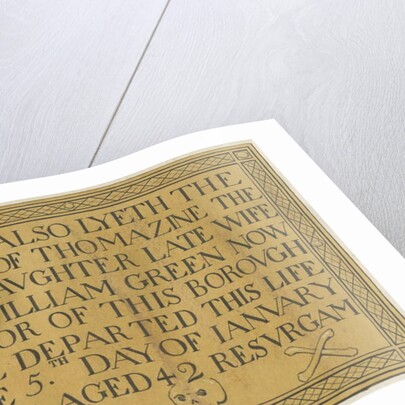 ALSO LYETH THE
OF THOMAZINE THE
AVGHTER LATE WIFE
ILLIAM GREEN NOW
OR OF THIS BOROVGH
E DEPARTED THIS LIFE
E 5.TH DAY OF IANVARY
AGED 42 RESVRGAM